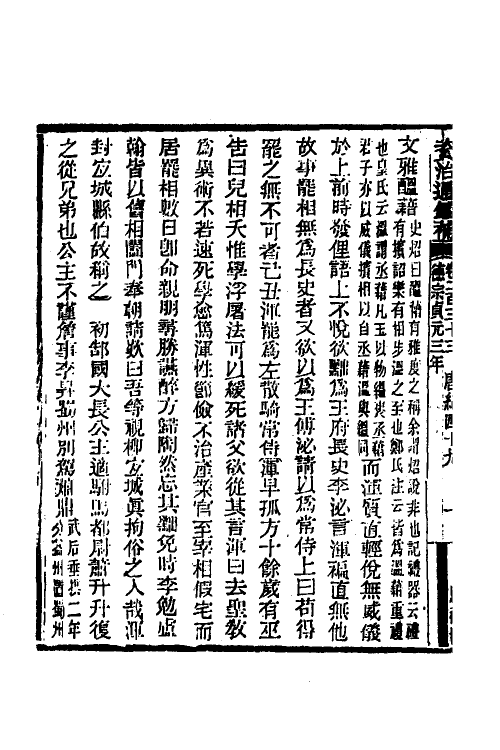 資治通鑑補 卷二百三十三 唐紀四十九
德宗貞元三年
文雅醞藉史炤曰醞藉有雅度之稱余謂炤說非也記禮器云禮
有擯詔樂有相步溫之至也鄭氏注云皆爲溫藉重禮
也皇氏云溫謂丞藉凡玉以物縕裹丞藉
君子亦以威儀擯相以自丞藉溫與縕同而渾質直輕侻無威儀
於上前時發俚語上不悅欲黜爲王府長史李泌言渾褊直無他
故事罷相無爲長史者又欲以爲王傅泌請以爲常侍上曰苟得
罷之無不可者己丑渾罷爲左散騎常侍渾早孤方十餘歲有巫
告曰兒相夭惟學浮屠法可以緩死諸父欲從其言渾曰去聖教
爲異術不若速死學愈篤渾性節儉不治產業官至宰相假宅而
居罷相數日卽命親朋尋勝讌醉方歸陶然忘其黜免時李勉盧
翰皆以舊相闔門奉朝請歎曰吾等視柳宜城眞拘俗之人哉渾
封宜城縣伯故稱之 初郜國大長公主適駙馬都尉蕭升升復
之從兄弟也公主不謹詹事李昇蜀州別駕蕭鼎武后垂拱二年
分益州置蜀州